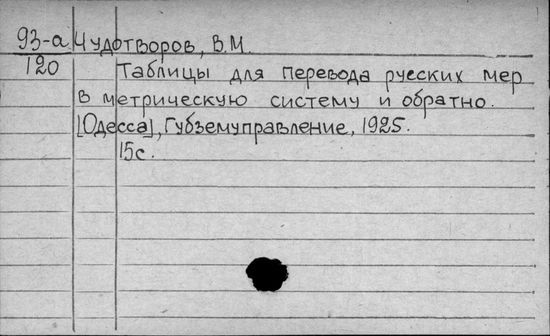 93-а Чудотворов, В.М.
120 Таблицы для перевода русских мер
в метрическую систему и обратно.
[Одесса], Губземуправление, 1925.
15с.